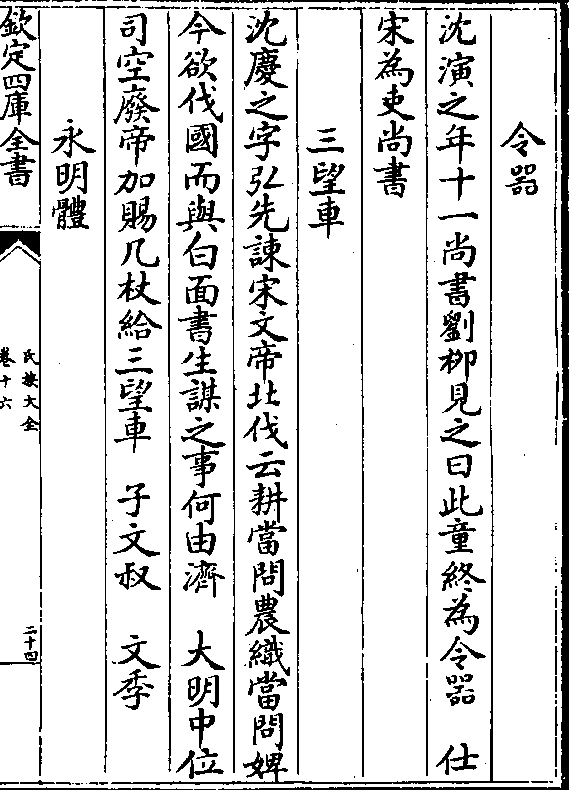 令器
沈演之年十一尚書劉柳見之曰此童終為令器　仕
宋為吏尚書
三望車
沈慶之字弘先諫宋文帝北伐云耕當問農織當問婢
今欲伐國而與白面書生謀之事何由濟　大明中位
司空廢帝加賜几杖給三望車　子文叔　文季
永明體
欽定四庫全書
氏族大全
卷十六
二十四